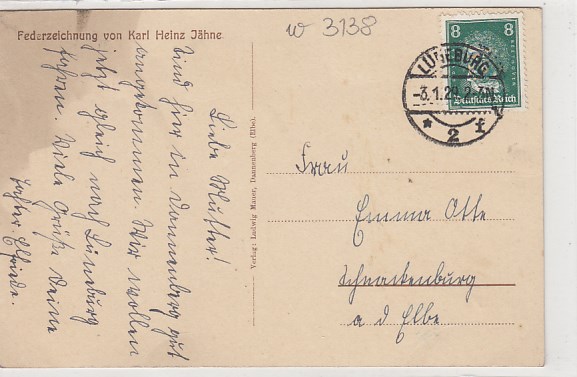 Federzeichnung von Karl Heinz Jähne
w 3138
8 8
Deutsches Reich
LÜNEBURG
-3.1.29. 2-3N
* 2 f
Liebe Mutter!
Sind hier in Dannenberg gut
angekommen. Wir wollen
jetzt gleich nach Lüneburg
fahren. Viele Grüße Deine
Tochter Elfriede.
Verlag: Ludwig Maner, Dannenberg (Elbe).
Frau
Emma Otte
Schnackenburg
a d Elbe